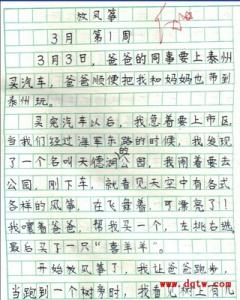 放风筝
3月 第1周
3月3日，爸爸的同事要上泰州
买汽车，爸爸顺便把我和妈妈也带到
泰州玩。
买完汽车以后，我急着要上市区，
当我们经过海军东路的时候，我发现
了一个名叫天德湖的公园，我闹着要去
公园，刚下车，就看见天空中有各式
各样的风筝，在飞舞着，可漂亮了！
我嚷着爸爸，帮我买一个，左挑右选，
最后买了一只“喜羊羊”。
开始放风筝了，我让爸爸跑步，
当跑到一个树旁时，我看见树上有几
www.dgtw.com